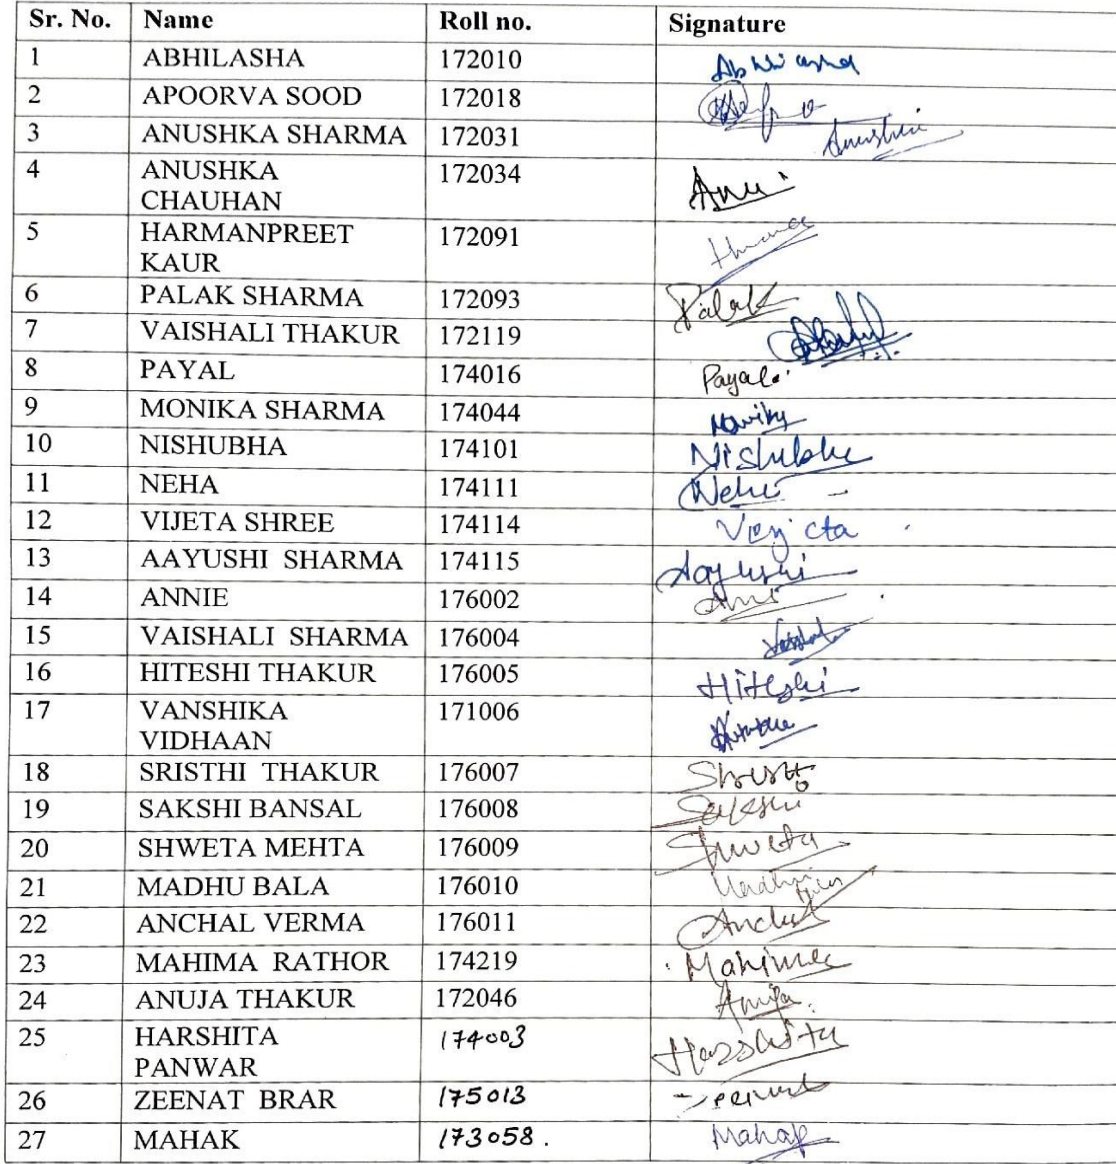 Sr. No. Name Roll no. Signature
1 ABHILASHA 172010
2 APOORVA SOOD 172018
3 ANUSHKA SHARMA 172031
4 ANUSHKA 172034
CHAUHAN
5 HARMANPREET 172091
KAUR
6 PALAK SHARMA 172093 Palak
7 VAISHALI THAKUR 172119
8 PAYAL 174016 Payal
9 MONIKA SHARMA 174044
10 NISHUBHA 174101 Nishubha
11 NEHA 174111 Neha
12 VIJETA SHREE 174114
13 AAYUSHI SHARMA 174115 Aayushi
14 ANNIE 176002
15 VAISHALI SHARMA 176004
16 HITESHI THAKUR 176005 Hiteshi
17 VANSHIKA 171006
VIDHAAN
18 SRISTHI THAKUR 176007
19 SAKSHI BANSAL 176008 Sakshi
20 SHWETA MEHTA 176009 Shweta
21 MADHU BALA 176010
22 ANCHAL VERMA 176011
23 MAHIMA RATHOR 174219 Mahima
24 ANUJA THAKUR 172046 Anuja
25 HARSHITA 174003 Harshita
PANWAR
26 ZEENAT BRAR 175013
27 MAHAK 173058. Mahak